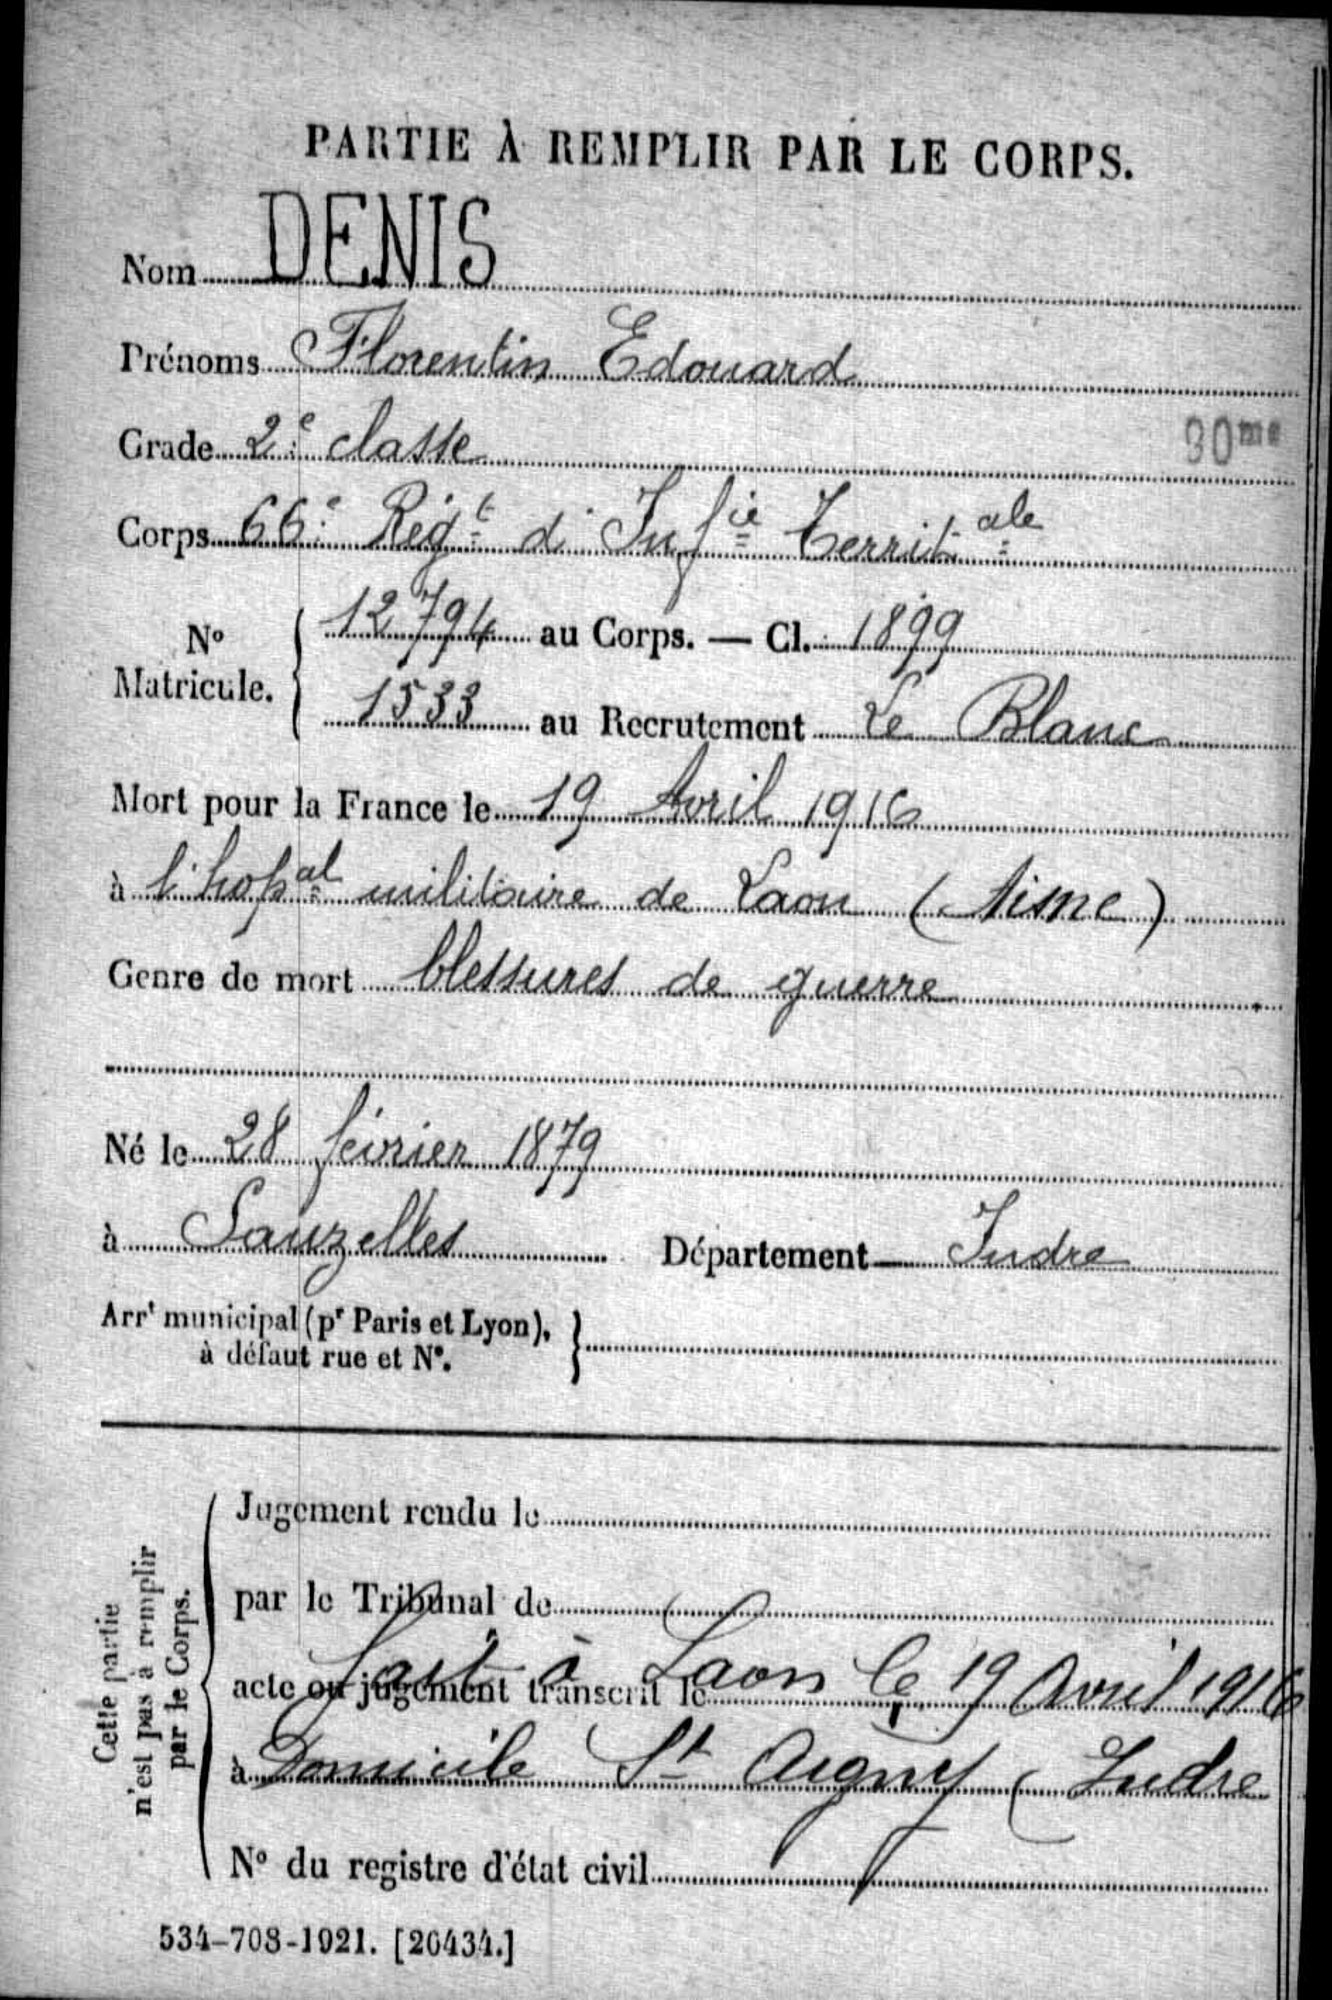 PARTIE À REMPLIR PAR LE CORPS.
Nom DENIS
Prénoms Florentin Edouard
Grade 2e classe
30me
Corps 66e Régt d'Infie Territale
No Matricule. 12794 au Corps. — Cl. 1899
1533 au Recrutement Le Blanc
Mort pour la France le 19 Avril 1916
à l'hopal militaire de Laon (Aisne)
Genre de mort blessures de guerre
Né le 28 février 1879
à Sauzelles Département Indre
Arrt municipal (pr Paris et Lyon), à défaut rue et No.
Cette partie n'est pas à remplir par le Corps.
Jugement rendu le
par le Tribunal de
acte ou jugement transcrit le
fait à Laon le 19 Avril 1916
à Domicile St Aigny (Indre
No du registre d'état civil
534-708-1921. [26434.]